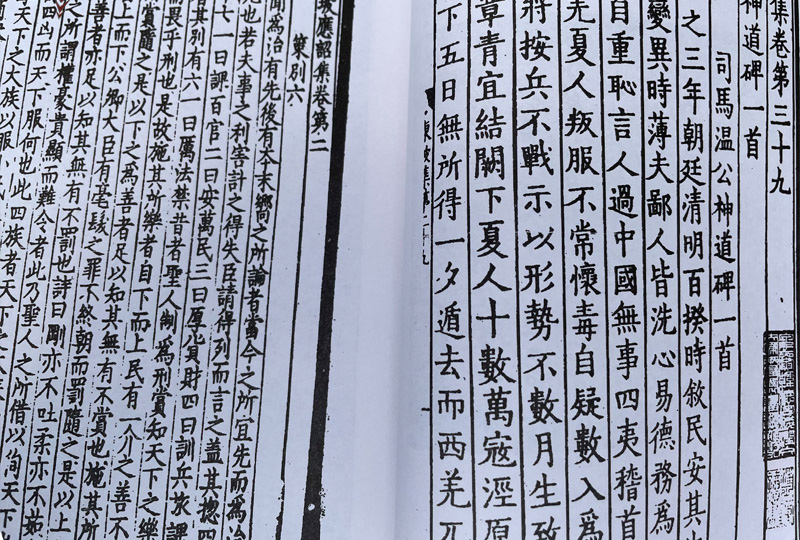 集卷第三十九
神道碑一首
司馬温公神道碑一首
之三年朝廷清明百揆時敘民安其
變異時薄夫鄙人皆洗心易德務為
自重恥言人過中國無事四夷稽首
羌夏人叛服不常懷毒自疑數入為
將按兵不戰示以形勢不數月生致
章青宜結闕下夏人十數萬寇涇原
下五日無所得一夕遁去而西羌兀
坡應詔集卷第二
策別六
聞為治有先後有本末嚮之所論者當今之所宜先而為治
也若夫事之利害計之得失臣請得列而言之蓋其摠四
七一曰課百官二曰安萬民三曰厚貨財四曰訓兵旅課
者其別有六一曰厲法禁昔者聖人制為刑賞知天下之樂
而畏乎刑也是故施其所樂者自下而上民有一介之善不
賞隨之是以下之為善者足以知其無有不賞也施其所
上而下公卿大臣有毫髮之罪不終朝而罰隨之是以上
善者亦足以知其無有不罰也詩曰剛亦不吐柔亦不茹
之所謂權豪貴顯而難令者此乃聖人之所借以徇天下
四凶而天下服何也此四族者天下之
天下之大族以服小